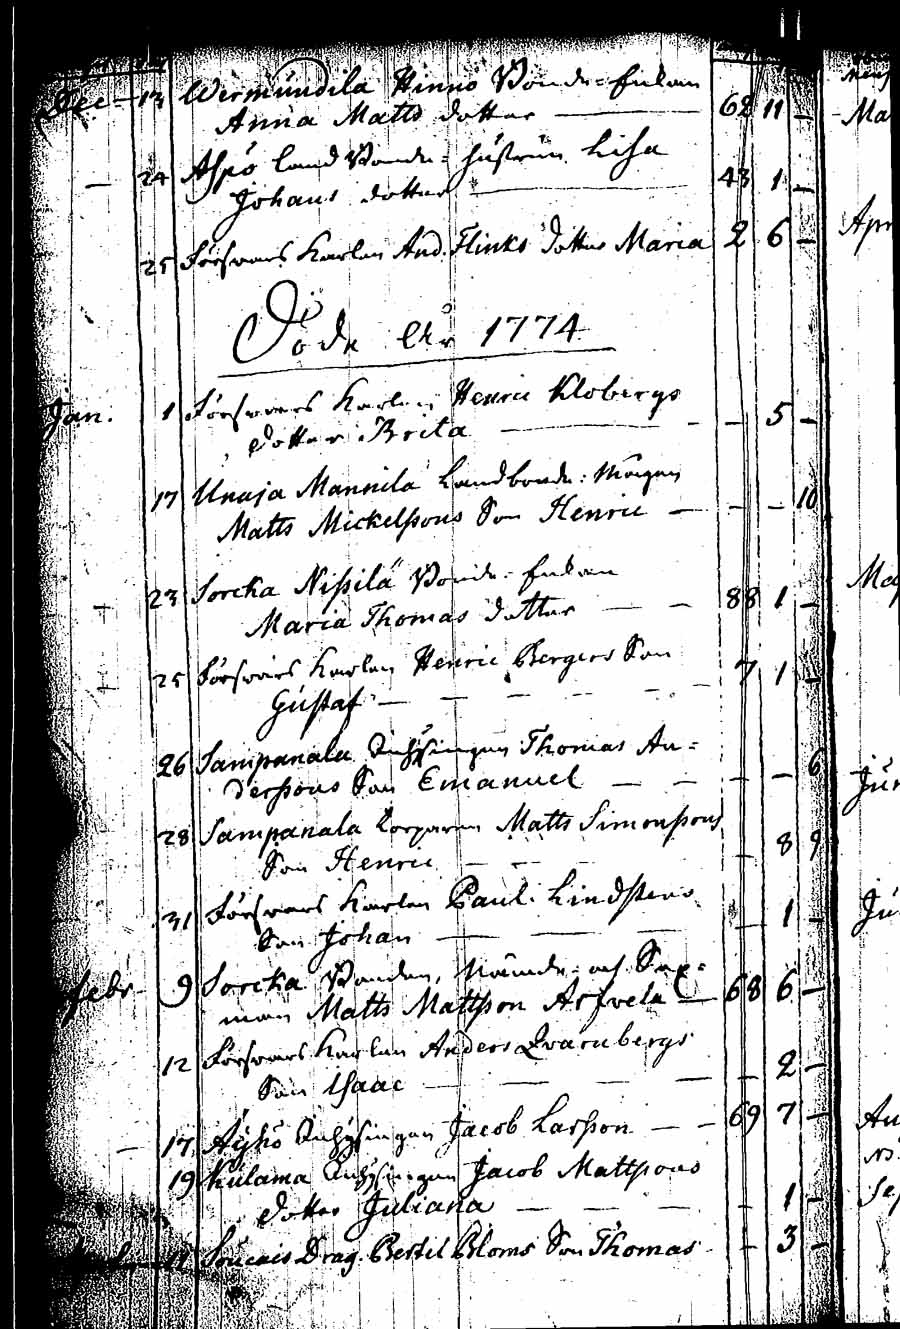 Dec 13 Wermundila Hinno Bonde-Enkan
Anna Matts dotter 62 11 -
- 24 Aspö Land Bonde-hustrun Lisa
Johans dotter 43 1 -
25 Försvars Karlen And. Flinks dotter Maria 2 6 -
Döde Åhr 1774
Jan. 1 Försvars Karlen Henric Klobergs
dotter Brita - - 5 -
17 Unaja Mannila Landbonde: Mågen
Matts Mickelssons Son Henric - - - 10
23 Sorcka Nissilä Bonde-Enkan
Maria Thomas dotter - - 88 1 -
25 Försvars Karlen Henric Bergers Son
Gustaf - - - - - 7 1 -
26 Sampanala Inhysingen Thomas An=
derssons Son Emanuel - - - - 6
28 Sampanala Torparen Matts Simonssons
Son Henric - - - 8 9
31 Försvars Karlen Paul Lindstens
Son Johan - - - 1 -
Febr 9 Sorcka Bonden, Nämde- och Sex=
man Matts Mattsson Arfvela - 68 6 -
12 Försvars Karlen Anders Qvarnbergs
Son Isaac - - - - - 2 -
- 17 Äyhö Inhysingen Jacob Larsson - - 69 7 -
19 Kulama Inhysingen Jacob Mattssons
dotter Juliana - - - - 1 -
11 Drag. Bertel Bloms Son Thomas - 3 -
Ma
Apr
Maj
Jun
Ju
Au
Sep